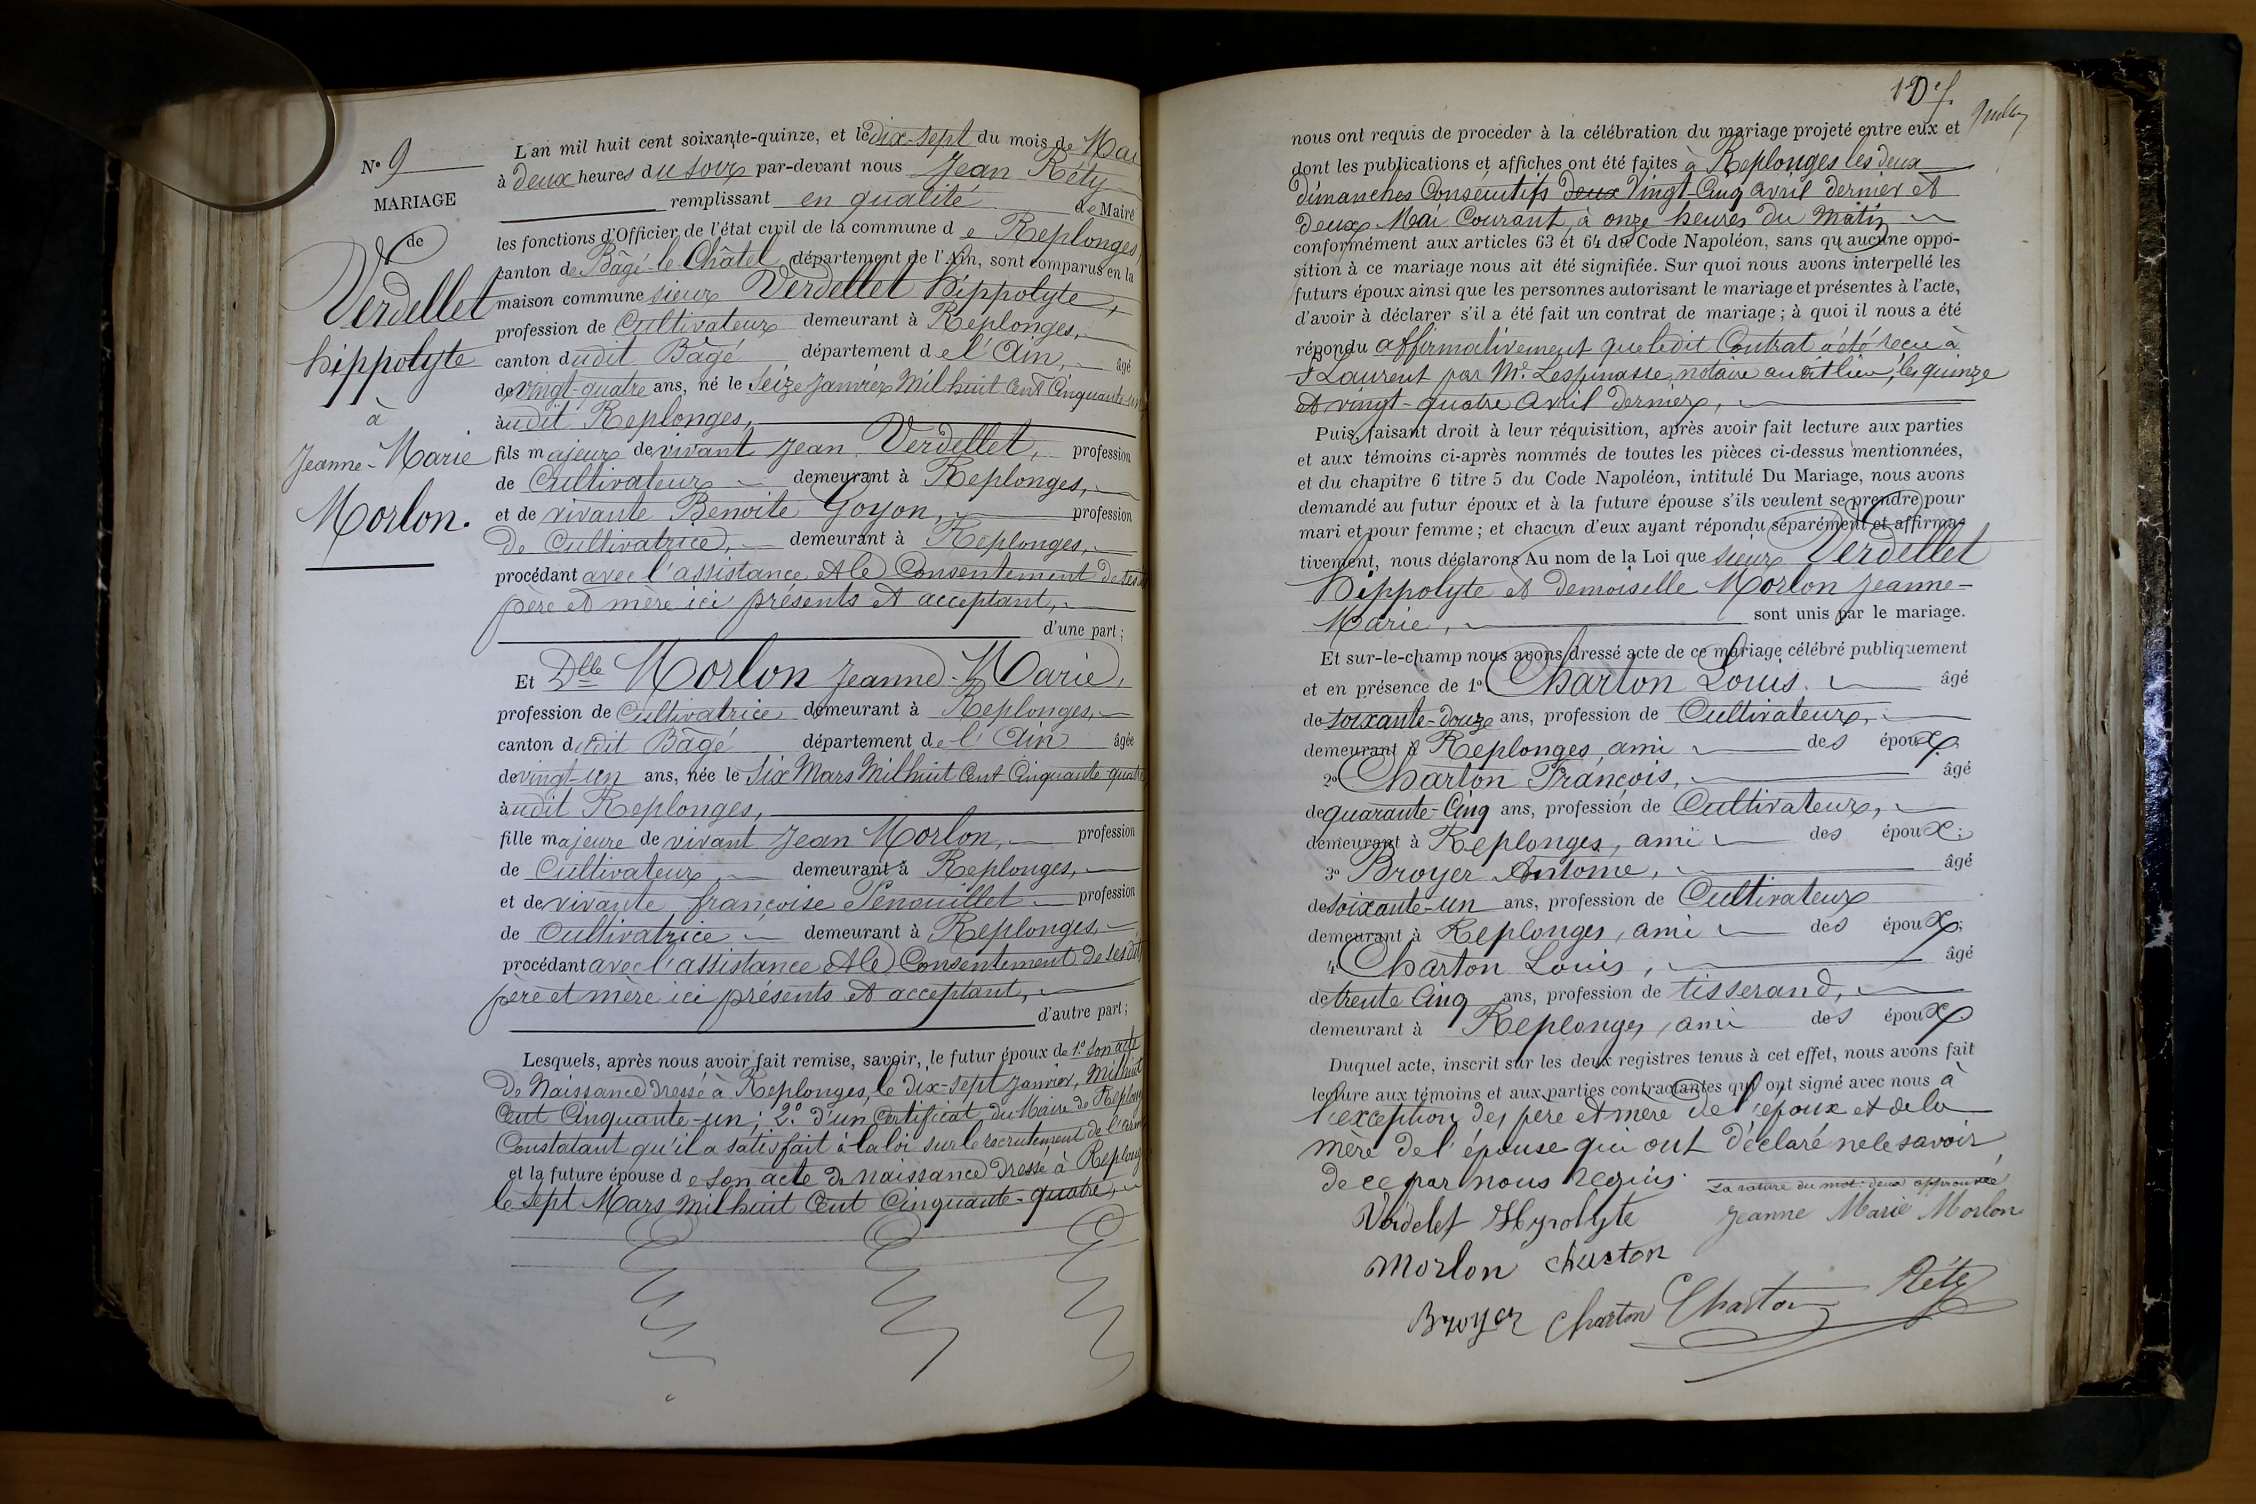 N° 9
MARIAGE
de
Verdellet
hippolyte
à
Jeanne-Marie
Morlon.
L'an mil huit cent soixante-quinze, et le dix-sept du mois de Mai
à deux heures du soir par-devant nous Jean Réty
remplissant en qualité de Maire
les fonctions d'Officier de l'état civil de la commune de Replonges,
canton de Bâgé-le-Châtel, département de l'Ain, sont comparus en la
maison commune sieur Verdellet hippolyte,
profession de Cultivateur demeurant à Replonges,
canton dudit Bâgé département de l'Ain, âgé
de vingt-quatre ans, né le seize janvier Mil huit Cent Cinquante-un
audit Replonges,
fils majeur de vivant Jean Verdellet, profession
de Cultivateur demeurant à Replonges,
et de vivante Benoite Goyon, profession
de Cultivatrice, demeurant à Replonges,
procédant avec l'assistance et le Consentement de ses dits
père et mère ici présents et acceptant,
d'une part;
Et Dlle Morlon Jeanne-Marie,
profession de Cultivatrice demeurant à Replonges,
canton dudit Bâgé département de l'Ain âgée
de vingt-un ans, née le Six Mars Mil huit Cent Cinquante-quatre,
audit Replonges,
fille majeure de vivant Jean Morlon, profession
de Cultivateur, demeurant à Replonges,
et de vivante françoise Penouillet profession
de Cultivatrice demeurant à Replonges,
procédant avec l'assistance et le Consentement de ses dits
père et mère ici présents et acceptant,
d'autre part;
Lesquels, après nous avoir fait remise, savoir, le futur époux de 1° son acte
de Naissance dressé à Replonges, le dix-sept janvier, Mil huit
Cent Cinquante-un; 2° d'un Certificat du Maire de Replonges
Constatant qu'il a satisfait à la loi sur le recrutement de l'armée
et la future épouse de son acte de naissance dressé à Replonges
le sept Mars Mil huit Cent Cinquante-quatre,
nous ont requis de procéder à la célébration du mariage projeté entre eux et
dont les publications et affiches ont été faites à Replonges les deux
dimanches Consécutifs deux Vingt-Cinq avril dernier et
deux Mai Courant, à onze heures du Matin
conformément aux articles 63 et 64 du Code Napoléon, sans qu'aucune oppo-
sition à ce mariage nous ait été signifiée. Sur quoi nous avons interpellé les
futurs époux ainsi que les personnes autorisant le mariage et présentes à l'acte,
d'avoir à déclarer s'il a été fait un contrat de mariage; à quoi il nous a été
répondu affirmativement que ledit Contrat a été reçu à
St Laurent par Me Lespinasse, notaire audit lieu, les quinze
et vingt-quatre Avril dernier,
Puis, faisant droit à leur réquisition, après avoir fait lecture aux parties
et aux témoins ci-après nommés de toutes les pièces ci-dessus mentionnées,
et du chapitre 6 titre 5 du Code Napoléon, intitulé Du Mariage, nous avons
demandé au futur époux et à la future épouse s'ils veulent se prendre pour
mari et pour femme; et chacun d'eux ayant répondu séparément et affirma-
tivement, nous déclarons Au nom de la Loi que sieur Verdellet
hippolyte et demoiselle Morlon Jeanne-
Marie, sont unis par le mariage.
Et sur-le-champ nous avons dressé acte de ce mariage célébré publiquement
et en présence de 1° Charton Louis. âgé
de soixante-douze ans, profession de Cultivateur,
demeurant à Replonges, ami des époux.
2° Charton François, âgé
de quarante-Cinq ans, profession de Cultivateur,
demeurant à Replonges, ami des époux;
3° Broyer Antoine, âgé
de soixante-un ans, profession de Cultivateur
demeurant à Replonges, ami des époux;
4° Charton Louis, âgé
de trente Cinq ans, profession de tisserand,
demeurant à Replonges, ami des époux.
Duquel acte, inscrit sur les deux registres tenus à cet effet, nous avons fait
lecture aux témoins et aux parties contractantes qui ont signé avec nous à
l'exception des père et mère de l'époux et de la
mère de l'épouse qui ont déclaré ne le savoir
de ce par nous requis. La rature du mot: deux approuvée
Verdelet Hypolyte Jeanne Marie Morlon
Morlon charton
Broyer Charton Charton Réty